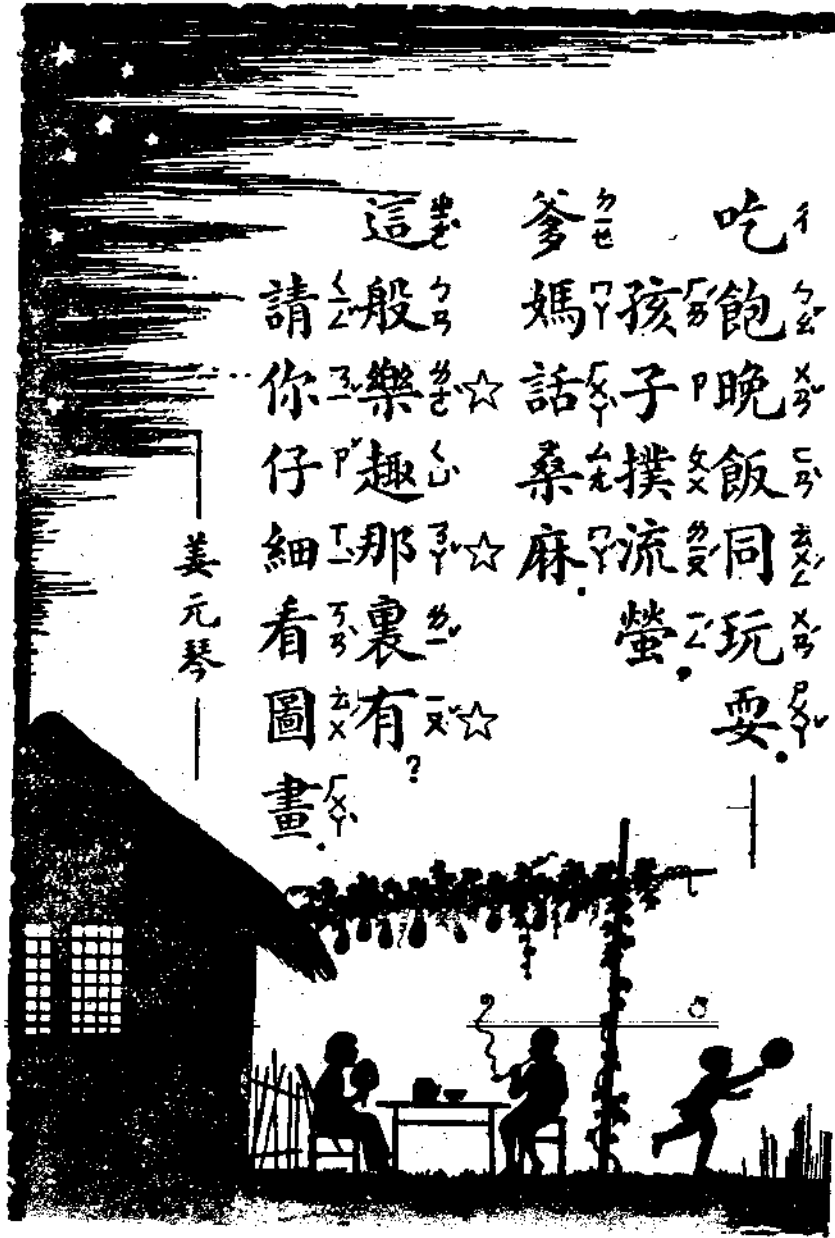 吃飽晚飯同玩耍.
孩子撲流螢.
爹媽話桑麻.
☆☆☆
這般樂趣那裏有?
請你仔細看圖畫.
姜元琴